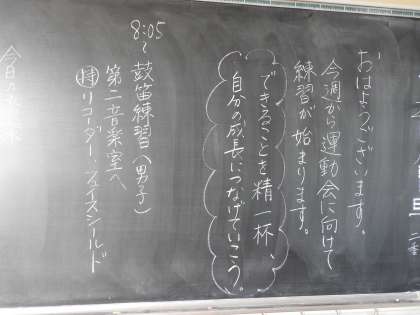 おはようございます。
今週から運動会に向けて
練習が始まります。
できることを精一杯、
自分の成長につなげていこう。
8:05
〜
鼓笛練習(男子)
第二音楽室へ
持リコーダー・フェイスシールド
今日の